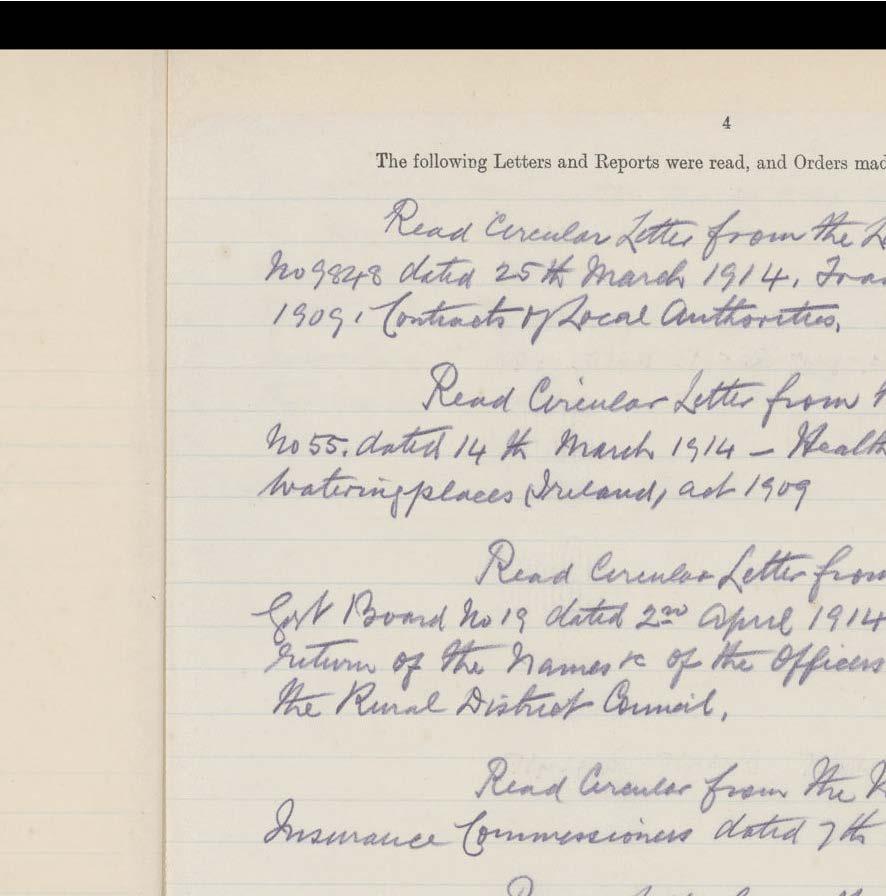 4
The following Letters and Reports were read, and Orders mad
Read Circular Letter from the L
No 9848 dated 25th March 1914, Tra
1909, Contracts of Local Authorities.
Read Circular Letter from
No 55. dated 14th March 1914 – Health
Watering places (Ireland) act 1909
Read Circular Letter from
Govt Board No 19 dated 2nd April 1914
return of the Names &c of the Officers
the Rural District Council.
Read Circular from the
Insurance Commissioners dated 7th